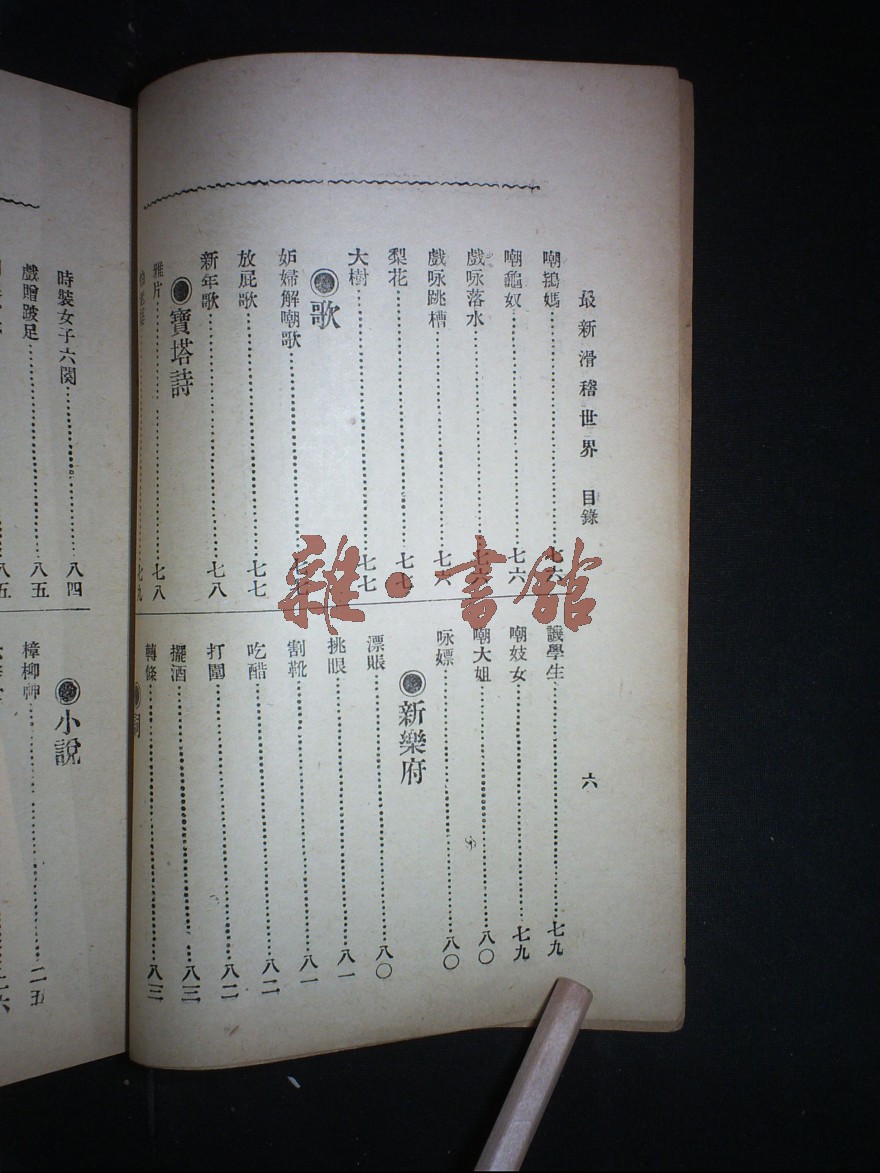 最新滑稽世界 目錄
六
嘲鴇媽……七六
嘲龜奴……七六
戲咏落水……七六
戲咏跳槽……七六
梨花……七七
大樹……七七
◉歌
妒婦解嘲歌……七七
放屁歌……七七
新年歌……七八
◉寶塔詩
雅片……七八
七九
譏學生……七九
嘲妓女……七九
嘲大姐……八〇
咏嫖……八〇
◉新樂府
漂賬……八〇
挑眼……八一
割靴……八一
吃醋……八二
打圍……八二
擺酒……八三
轉條……八三
時裝女子六闋……八四
戲贈跛足……八五
八五
◉小說
樟柳神……二五
雜·書館